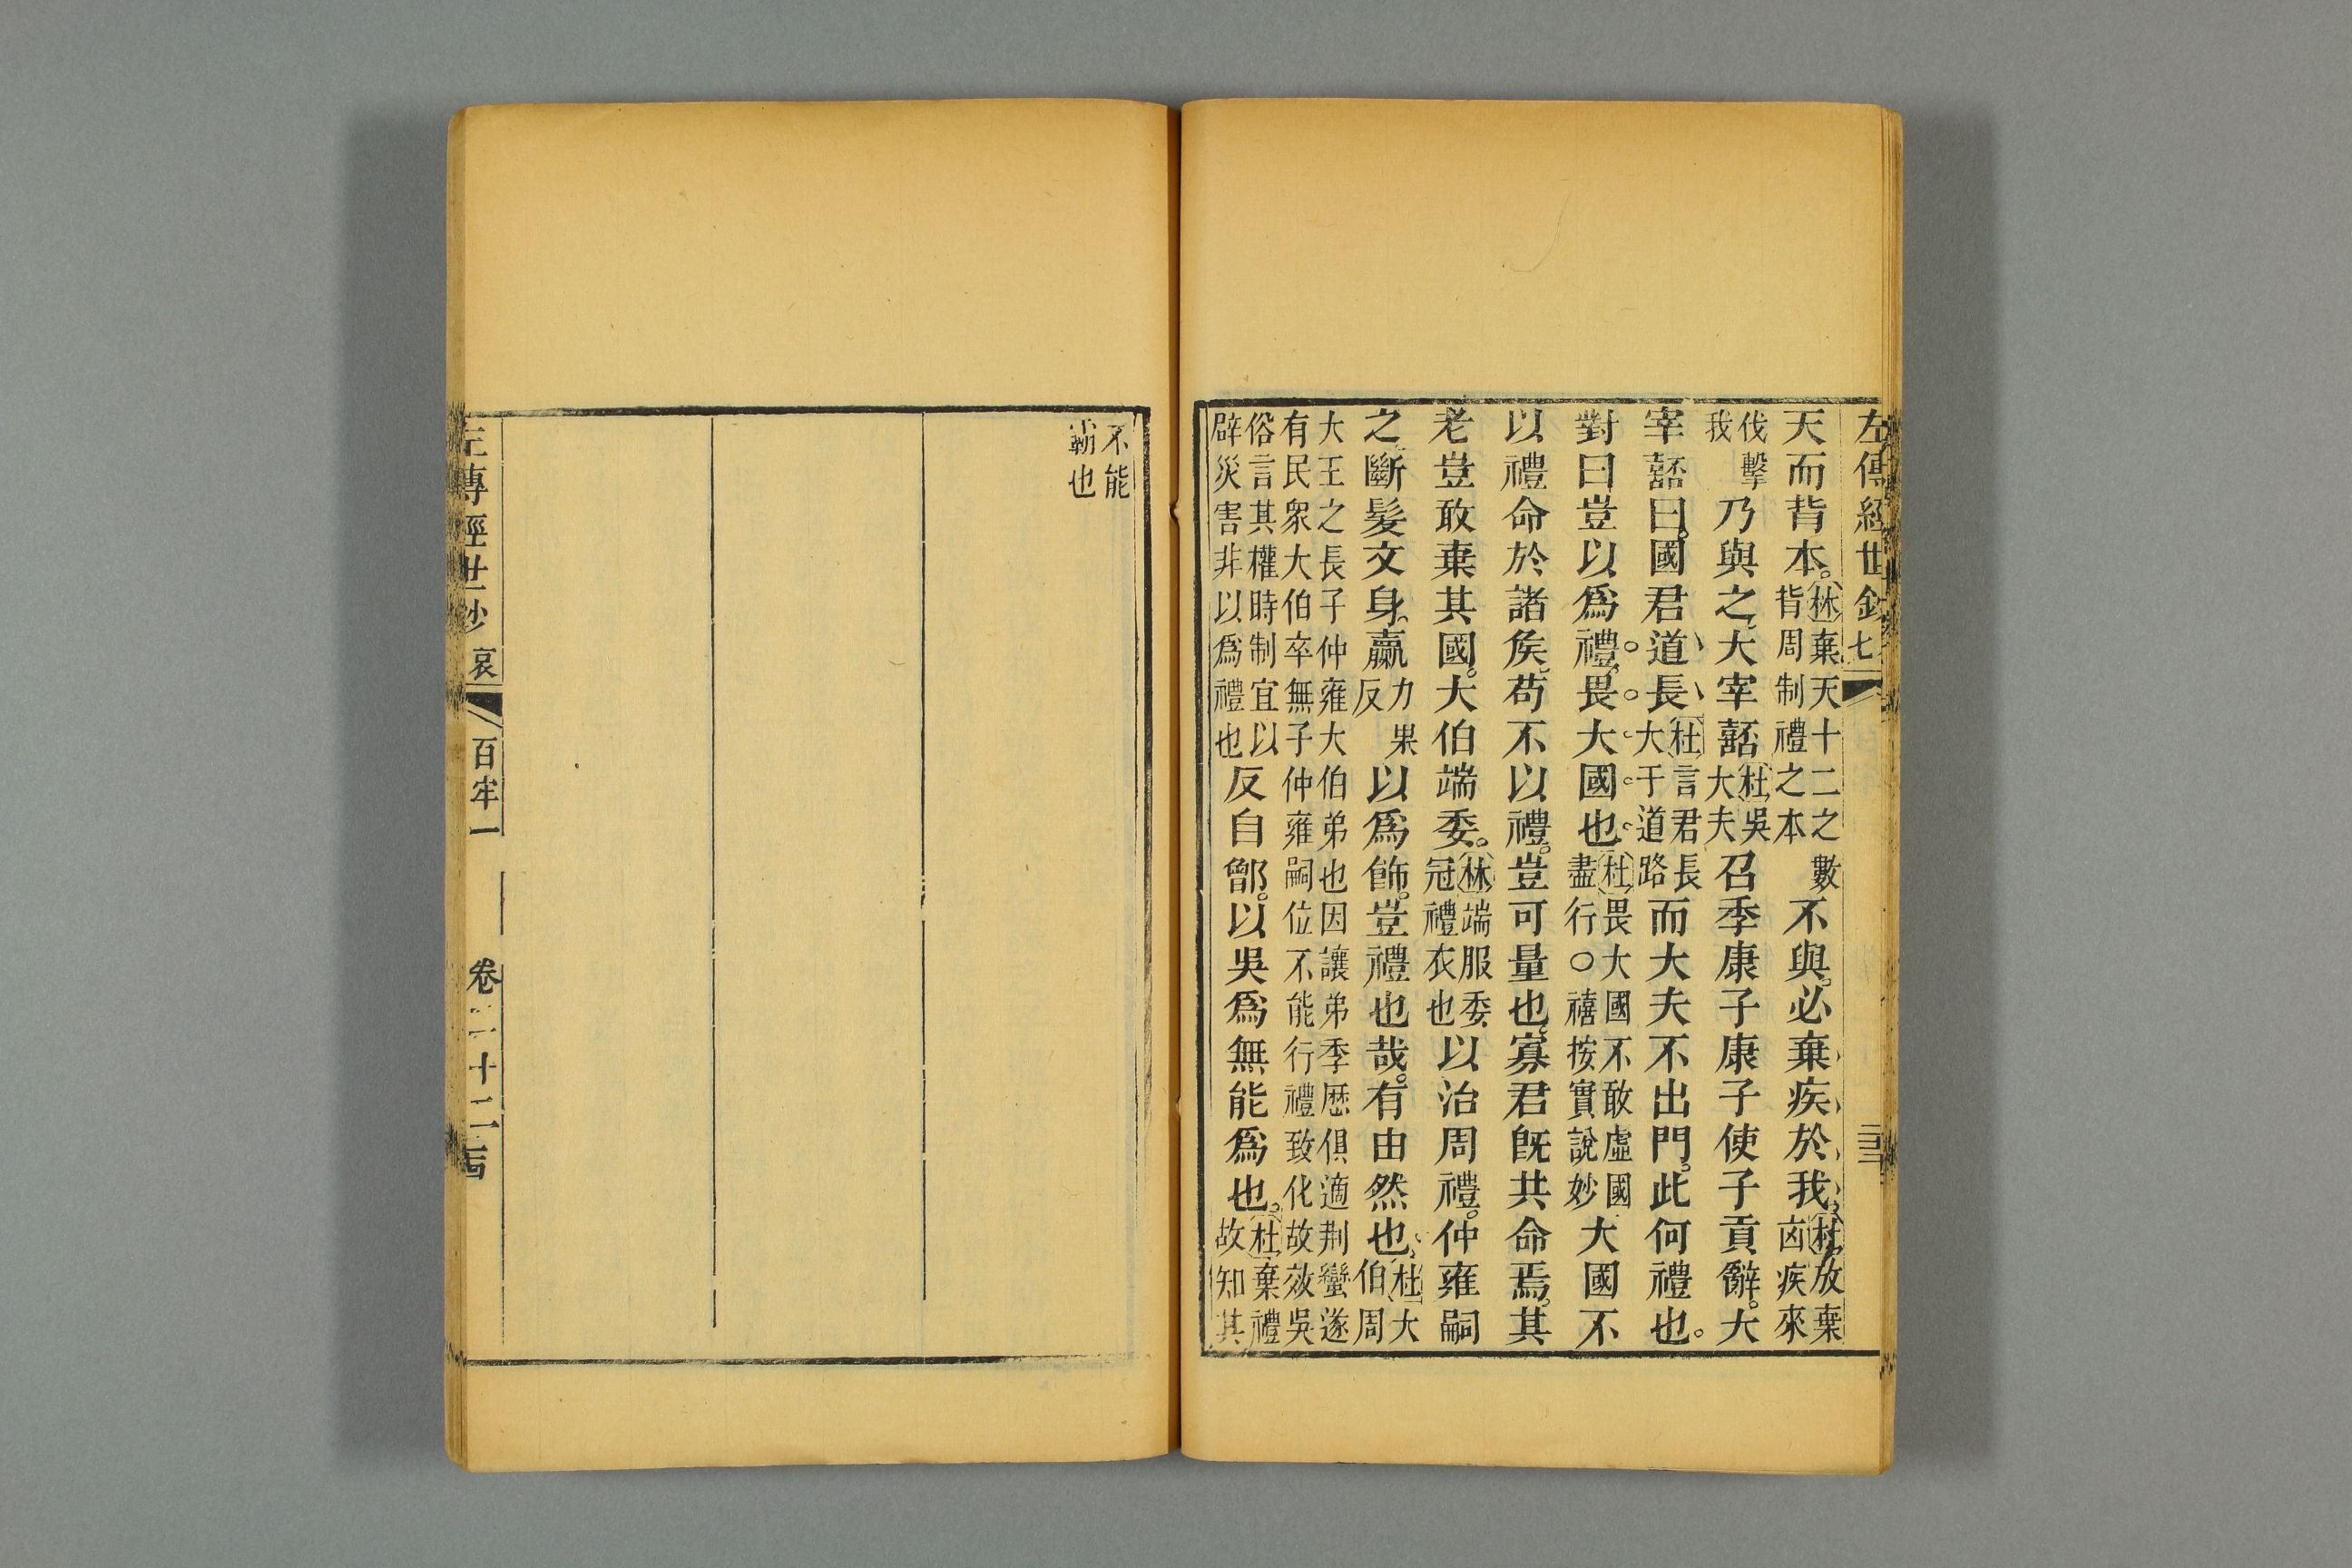 左傳經世鈔 七
天而背本。林棄天十二之數背周制禮之本不與。必棄疾於我。杜放棄凶疾來
伐擊我乃與之。大宰嚭杜吳大夫召季康子康子使子貢辭。大
宰嚭曰。國君道長杜言君長大于道路而大夫不出門。此何禮也。
對曰豈以爲禮。畏大國也杜畏大國不敢虛國盡行○禧按實說妙大國不
以禮命於諸矦。苟不以禮。豈可量也。寡君旣共命焉。其
老豈敢棄其國。大伯端委。林端服委冠禮衣也以治周禮。仲雍嗣
之。斷髮文身。臝力果反以爲飾。豈禮也哉。有由然也。杜大伯周
大王之長子仲雍大伯弟也因讓弟季歷俱適荆蠻遂有民衆大伯卒無子仲雍嗣位不能行禮致化故效吳
俗言其權時制宜以辟災害非以爲禮也反自鄫。以吳爲無能爲也。杜棄禮故知其
不能霸也
左傳經世鈔 哀 百牢一 卷二十二